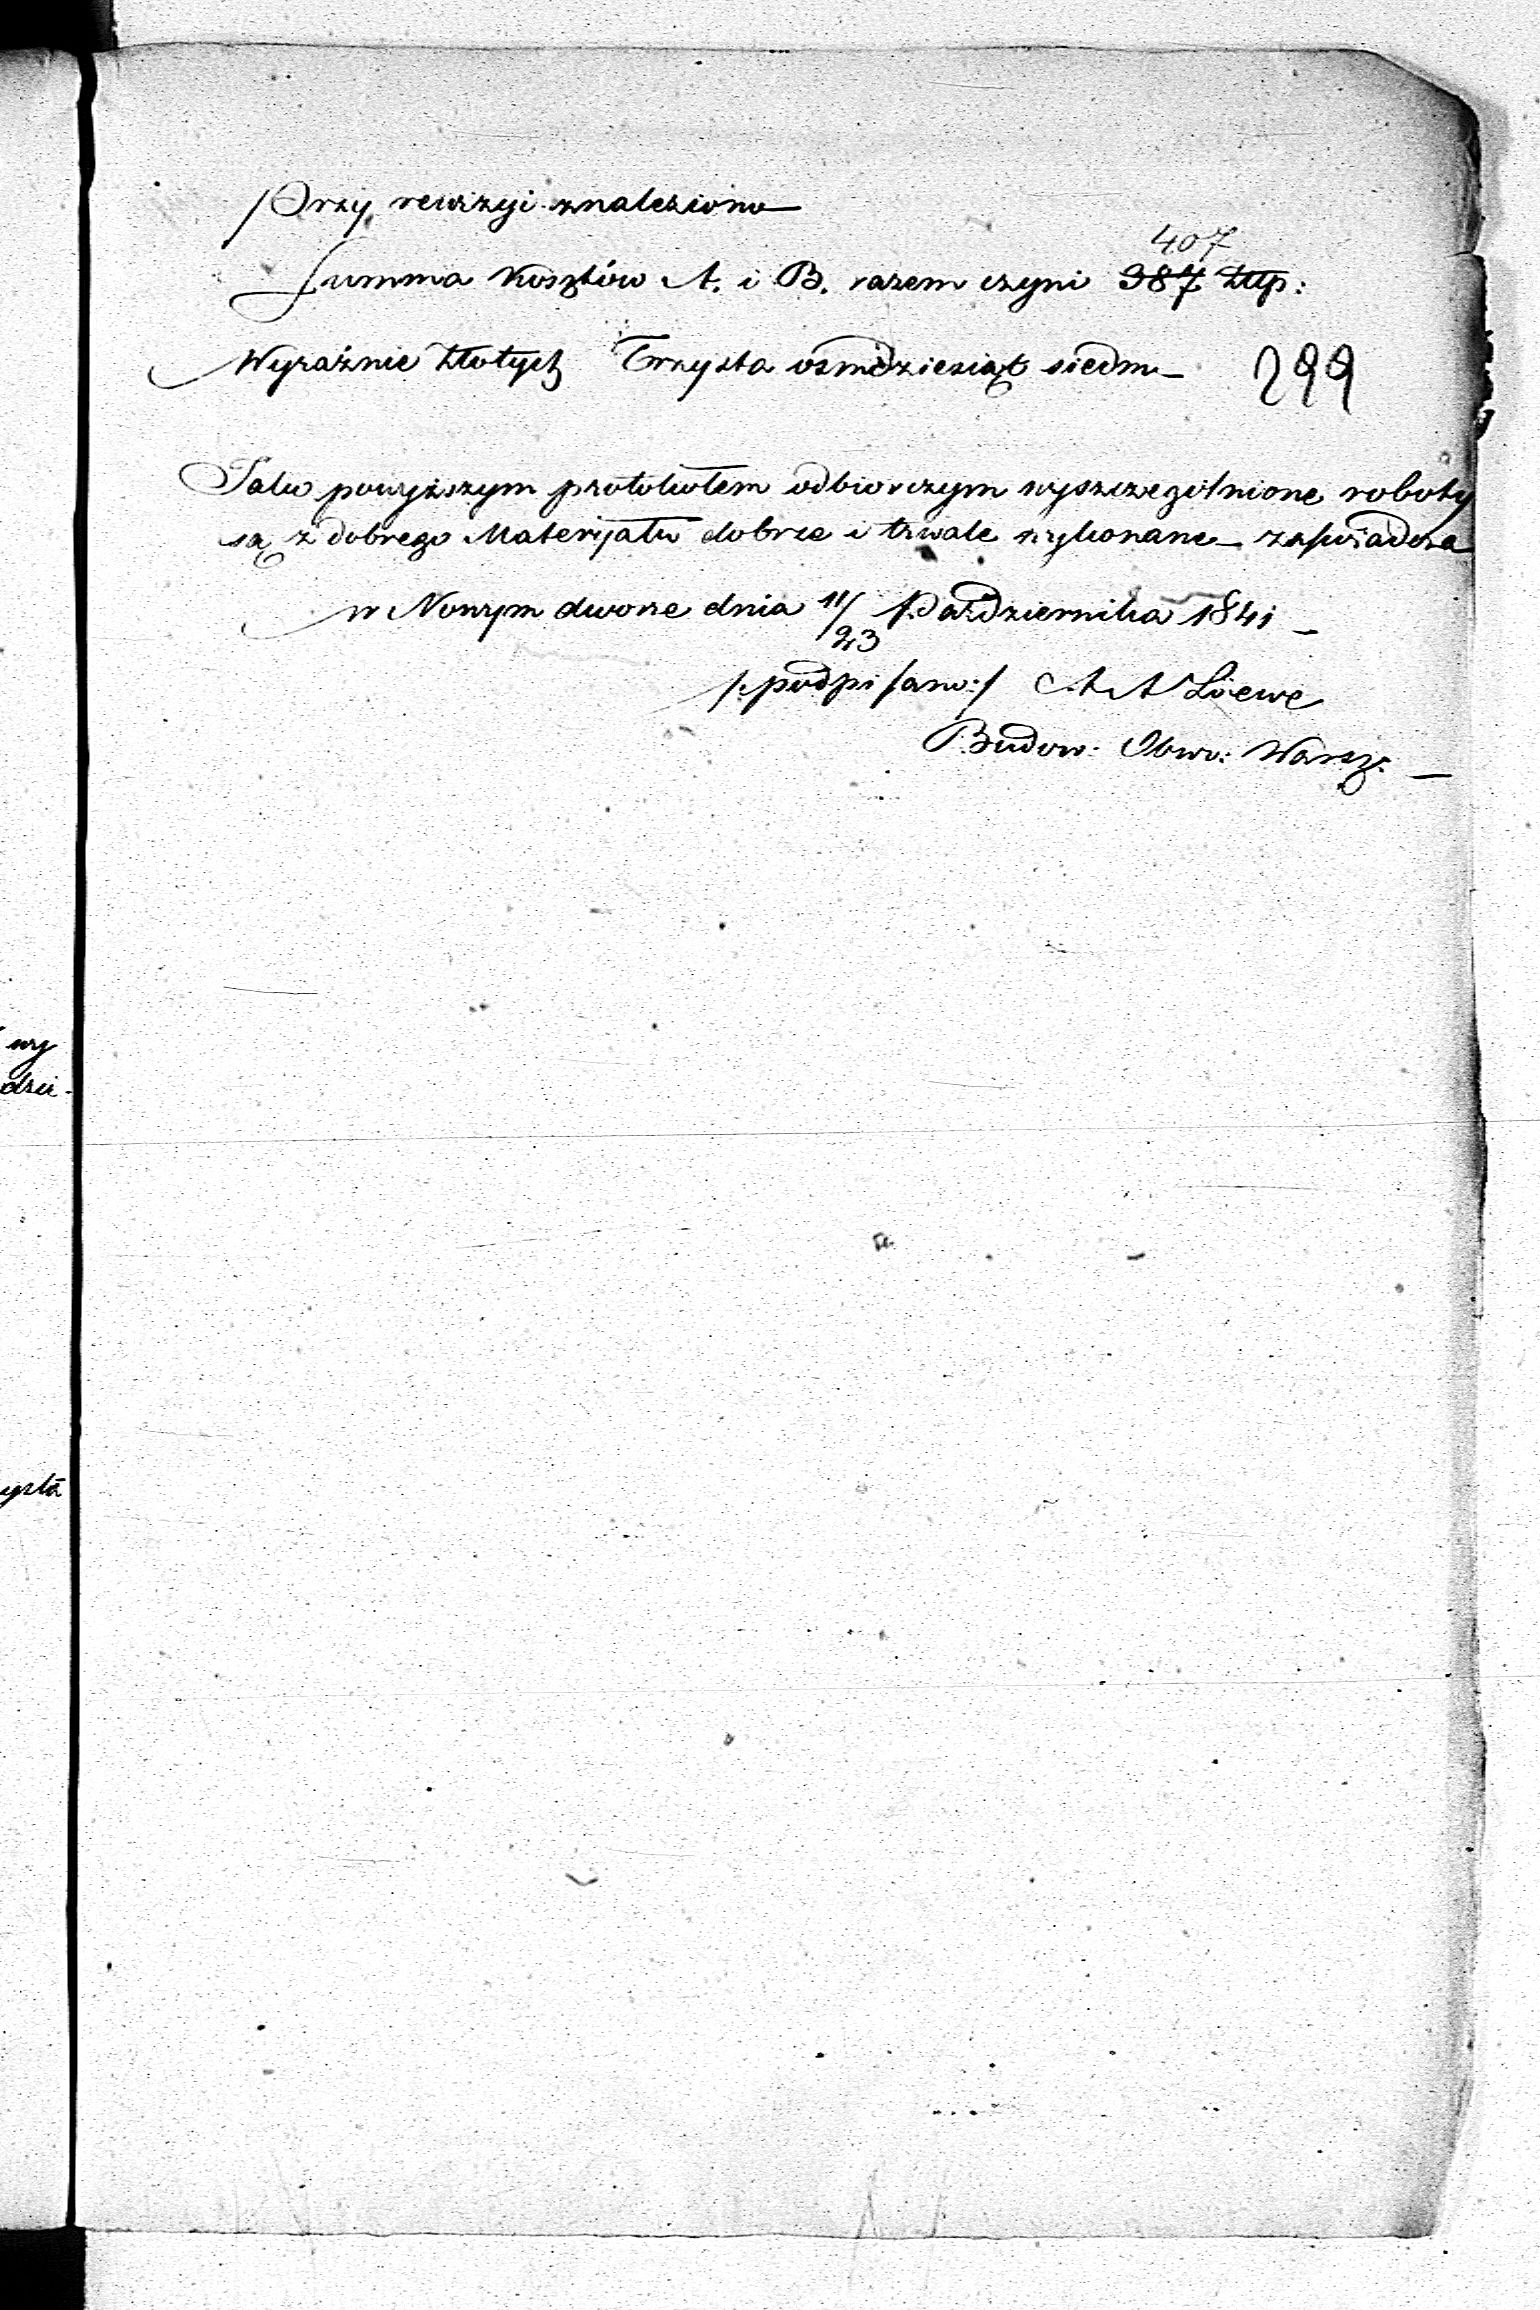 Przy rewizyi znaleziono
407
Summa kosztów A. i B. razem czyni 387 Złlp:
Wyraźnie Złotych Trzysta ośmdziesiąt siedm —
299
Jako powyższym protokółem odbiorczym wyszczególnione roboty
są z dobrego Materyału dobrze i trwale wykonane — zaświadcza
w Nowym dworze dnia 11/23 Października 1841 —
/:podpisano:/ A A Loewe
Budow: Obwo: Warsz: —
wy
dzie-
ystа